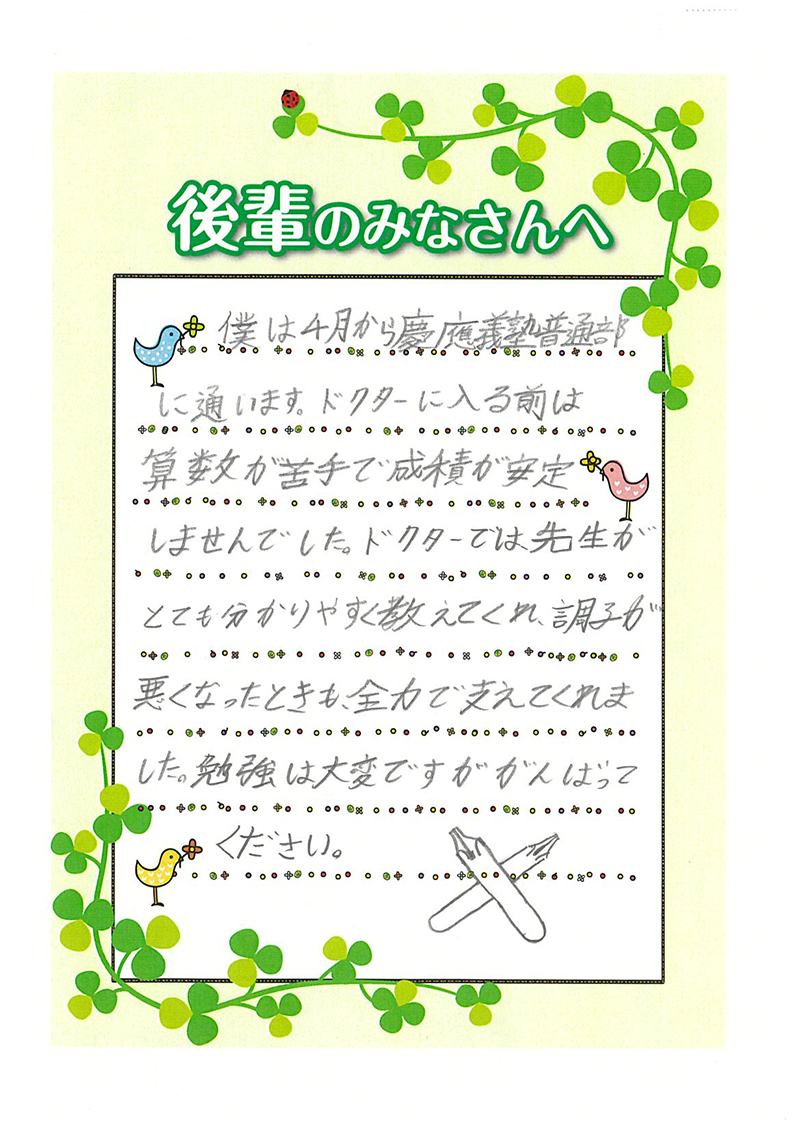 後輩のみなさんへ
僕は4月から慶應義塾普通部
に通います。ドクターに入る前は
算数が苦手で成積が安定
しませんでした。ドクターでは先生が
とても分かりやすく教えてくれ、調子が
悪くなったときも、全力で支えてくれま
した。勉強は大変ですががんばって
ください。